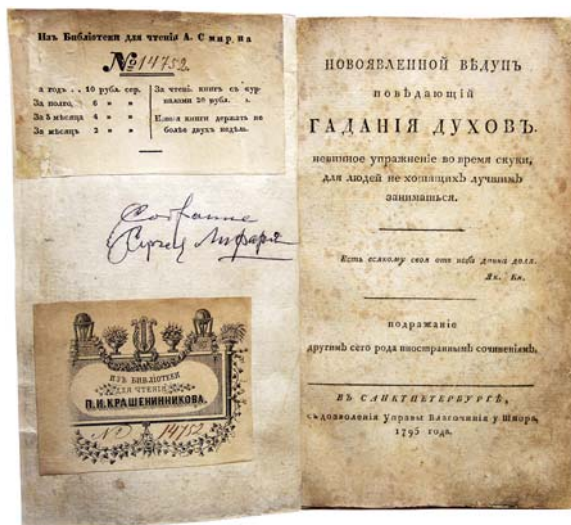 Изъ Библіотеки для чтенія А. Смирдина
№ 14752
а годъ . . 10 рубл. сер.
За полго. 6 » »
За 3 мѣсяца 4 » »
За мѣсяцъ 2 » »
За чтені. книгъ съ жур-
налами 20 рубл.
книги держать не
болѣе двухъ недѣль.
Собрание
Сергея Лифаря
ИЗЪ БИБЛІОТЕКИ
ДЛЯ ЧТЕНІЯ
П. И. КРАШЕНИННИКОВА.
№ 14752
НОВОЯВЛЕННОЙ ВѢДУНЪ
повѣдающій
ГАДАНІЯ ДУХОВЪ.
невинное упражненіе во время скуки,
для людей не хотящихъ лучшимъ
заниматься.
Есть всякому своя отъ неба данна доля.
Як. Кн.
подражаніе
другимъ сего рода иностраннымъ сочиненіямъ.
ВЪ САНКТПЕТЕРБУРГѢ,
съ дозволенія Управы Благочинія у Шнора,
1795 года.